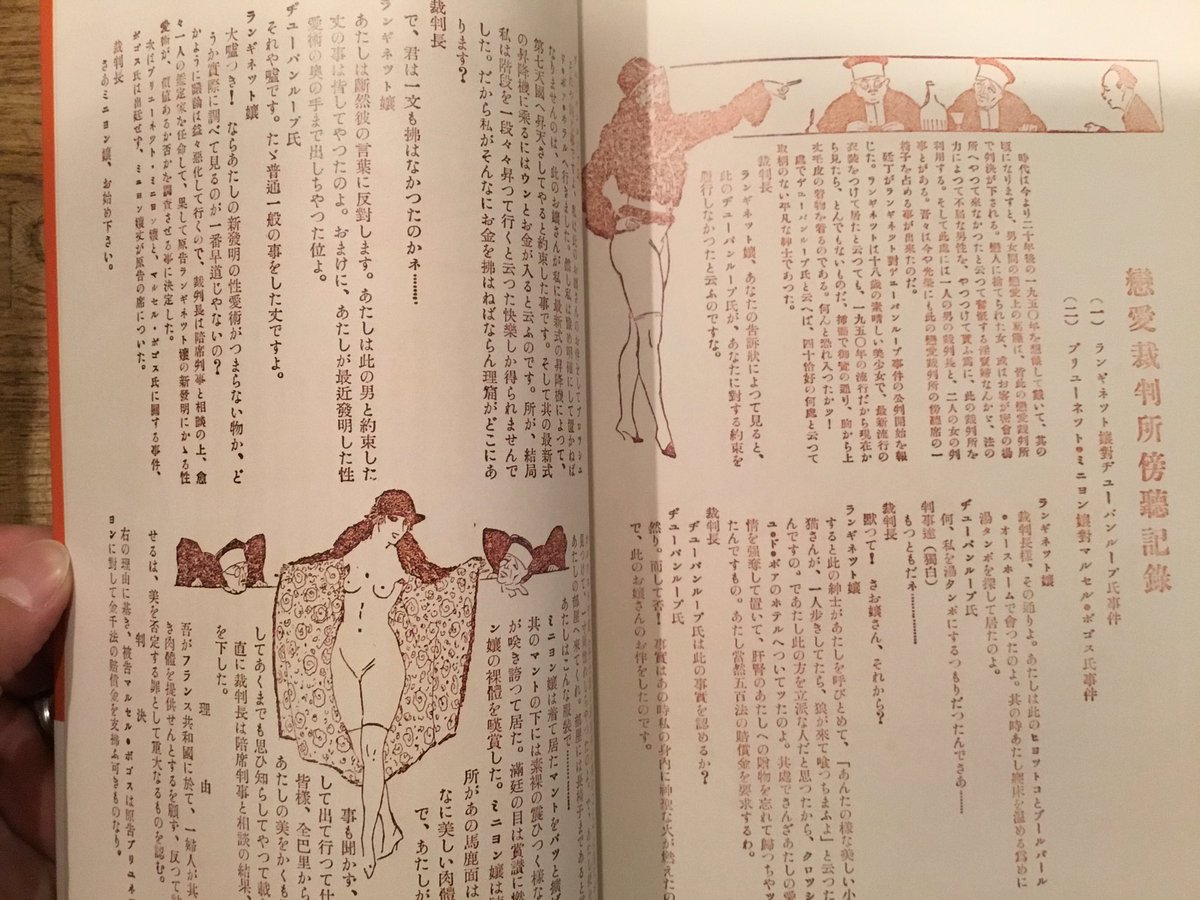 戀愛裁判所傍聽記錄
(一) ランギネット孃對ヂューバンルーブ氏事件
(二) ブリユーネット・ミニヨン孃對マルセル・ボゴス氏事件
時代は今より二十年後の一九五〇年を想像して戴いて、其の
頃になりますと、男女間の戀愛上の
で判決が下される。戀人に捨てられた女、或はお客が密會の場
所へやつて來なかつたと云つて奮慨する淫賣婦なんかと、法の
力によつて不屆な男性を、やつつけて貰ふ爲に、此の裁判所を
利用する。そして此處には一人の男の裁判長と、二人の女の判
事とがある。吾々は今や光榮にも此の戀愛裁判所の傍聽席の一
椅子を占める事が出來たのだ。
廷丁がランギネット對デューバンルーブ事件の公判開始を報
じた。ランギネットは十八歳の素晴しい美少女で、最新流行の
衣裝をつけて居たと云つても、一九五〇年の流行だから現在か
ら見たら、とんでもないものだ、揷畫で御覽の通り、胸から上
丈毛皮の着物を着るのである。何んと恐れ入つたかッ!
處でデューバンルーブ氏と云へば、四十恰好の何處と云つて
取柄のない平凡な紳士であつた。
裁判長
ランギネット孃、あなたの告訴狀によつて見ると、
此のヂューバンルーブ氏が、あなたに對する約束を
履行しなかつたと云ふのですな。
ランギネット孃
裁判長樣、その通りよ。あたしは此のヒヨットコとブールバール
・オースホームで會つたのよ。其の時あたし寢床を溫める爲めに
湯タンポを探して居たのよ。
ヂューバンルーブ氏
何、私を湯タンポにするつもりだつたんでさあ………
判事達(獨白)
もつともだネ…………
裁判長
默つて! さお孃さん、それから?
ランギネット孃
すると此の紳士があたしを呼びとめて、「あんたの樣な美しい小
猫さんが、一人歩きしてたら、狼が來て喰つちまふよ」と云つた
んですの。であたし此の方を立派な人だと思つたから、クロワシ
ユ・ド・ボアのホテルへついてツたのよ。其處でさんざあたしの愛
情を强奪して置いて、肝腎のあたしへの贈物を忘れて歸つちやツ
たんですもの。あたし當然五百法の賠償金を要求するわ。
裁判長
ヂューバンルーブ氏は此の事實を認めるか?
ヂューバンルーブ氏
然り。而して否! 事實はあの時私の身内に神聖な火が燃えたの
で、此のお孃さんのお伴をしたのです。
へ行きました。然し私は豫め明瞭にして置かねば
なりませんのは、此のお孃さんが私に最新式の昇降機によつて、
第七天國へ昇天さしてやると約束した事です。そして其の最新式
の昇降機に乘るにはウンとお金が入ると云ふのです。所が、結局
私は階段を一段々々昇つて行くと云つた快樂しか得られませんで
した。だから私がそんなにお金を拂はねばならん理窟がどこにあ
ります?
裁判長
で、君は一文も拂はなかつたのかネ………
ランギネット孃
あたしは斷然彼の言葉に反對します。あたしは此の男と約束した
丈の事は皆してやつたのよ。おまけに、あたしが最近發明した性
愛術の奥の手まで出しちやつた位よ。
ヂューバンルーブ氏
それや嘘です。たゞ普通一般の事をした丈ですよ。
ランギネット孃
大嘘つき! ならあたしの新發明の性愛術がつまらない物か、ど
うか實際に調べて見るのが一番早道じやないの?
かように議論は益々惡化して行くので、裁判長は陪席判事と相談の上、愈
々一人の鑑定家を任命して、果して原告ランギネット孃の新發明にかゝる性
愛術が、價値あるか否かを調査させる事に決定した。
次はブリユーネット・ミニヨン孃と、マルセル・ボゴス氏に關する事件、
ボゴス氏は出廷せず、ミニヨン孃丈が原告の席についた。
裁判長
さあミニヨン孃、お始め下さい。
あたしの部屋へ來てくれ、部屋には長椅子まであると
あたしはこんな服裝で…………
ミニヨン孃は着て居たマントをパッと擴げ
其のマントの下には素裸の震ひつく樣な
が咲き誇つて居た。滿廷の目は賞讃に燃
ン孃の裸體を嘆賞した。ミニヨン孃は
所があの馬鹿面は
なに美しい肉體
で、あたしが
事も聞かず、
して出て行つて仕
皆樣、全巴里から
あたしの美をかくも
してあくまでも思ひ知らしてやつて戴
直に裁判長は陪席判事と相談の結果、
を下した。
理由
吾がフランス共和國に於て、一婦人が其
き肉體を提供せんとするを顧ず、反つて
せるは、美を否定する罪として重大なるものを認む。
判決
右の理由に基き、被告マルセル・ボゴスは原告ブリユネ
ヨンに對して金千法の賠償金を支拂ふ可きものなり。